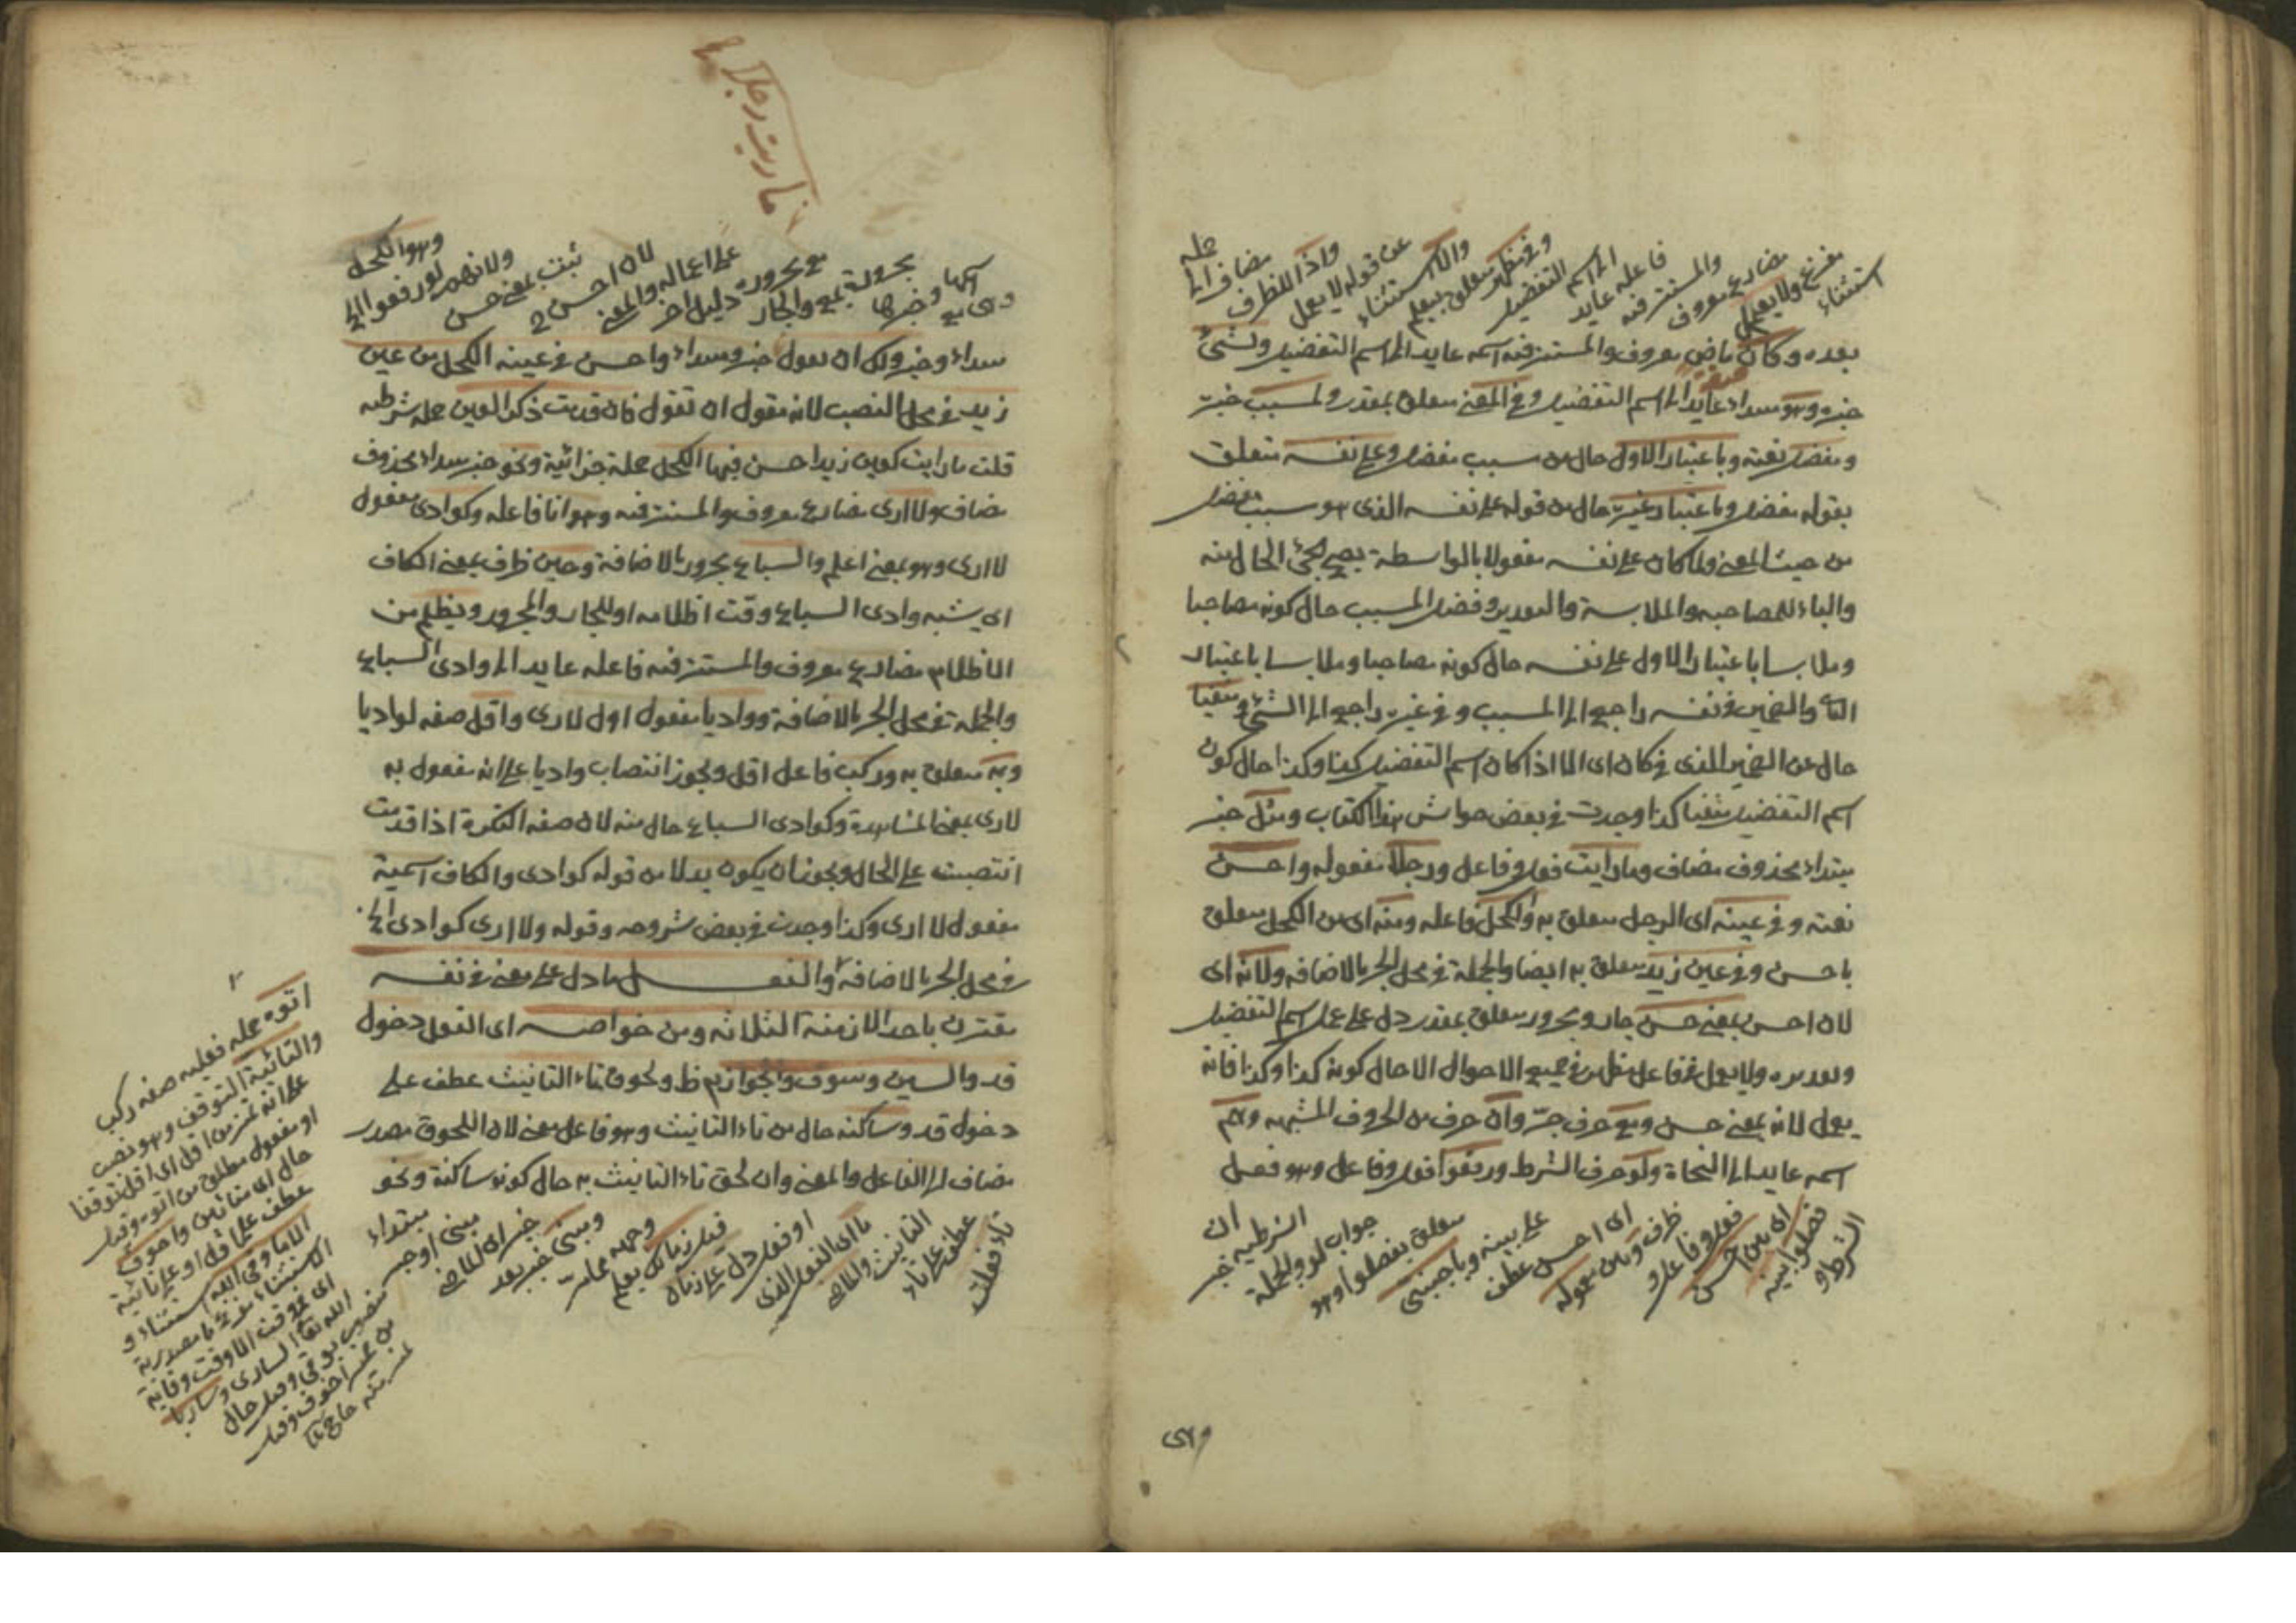 استثناء
مفرغ ولا يعمل
مضارع معروف
والمستتر فيه
فاعله عايد
الى اسم
التفضيل
وفي مظهر متعلق بيعمل
والا استثناء
عن قوله لا يعمل
واذا للظرف
مضاف الى
جمله
بعده وكان ماض معروف والمستتر فيه اسمه عايد الى اسم التفضيل ولشئ
خبره وهو مبتداء عايد الى اسم التفضيل وفي المعنى متعلق بمقدر ولمسبب خبره
ومفضل نعته وباعتبار الاول حال من مسبب مفضل وعلى نفسه متعلق
بقوله مفضل وباعتبار غيره حال من قوله على نفسه الذي هو سبب مفضل
من حيث المعنى ولما كان على نفسه مفعولا بالواسطة يصح مجئ الحال منه
والباء للمصاحبه والملابسة والتقدير وفضل المسبب حال كونه مصاحبا
وملابسا باعتبار الاول على نفسه حال كونه مصاحبا وملابسا باعتبار
الثاني والضمير في نفسه راجع الى المسبب وفي غيره راجع الى الشئ ومنفيا
حال من الضمير الذي في كان اى الا اذا كان اسم التفضيل كذا وكذا حال كون
اسم التفضيل منفيا كذا وجدت في بعض حواشى هذا الكتاب ومثل خبر
مبتداء محذوف مضاف وما رايت فعل وفاعل ورجلا مفعوله واحسن
نعته وفي عينه اى الرجل متعلق به والكحل فاعله ومنه اى من الكحل متعلق
باحسن وفي عين زيد متعلق به ايضا والجملة في محل الجر بالاضافه ولانه اى
لان احسن بمعنى حسن جار ومجرور متعلق بمقدر دل على عمل اسم التفضيل
وتقديره ولا يعمل في فاعل مظهر في جميع الاحوال الا حال كونه كذا وكذا فانه
يعمل لانه بمعنى حسن ومع حرف جر وان حرف من الحروف المشبهه وهم
اسمه عايد الى النحاة ولو حرف الشرط ورفعوا فعل وفاعل وهو فعل
الشرط و
فصلوا بينه
اى بين احسن
فعل وفاعل و
ظرف وبين معموله
اى احسن عطف
على بينه وباجنبى
متعلق بفصلوا وهو
جواب لو والجملة
الشرطيه خبر
ان
وهى
ما رايت رجلا
وهى مع
اسمها وخبرها
مجرورة بمع والجار
مع مجروره دليل اخر
على اعماله والمعنى
لان احسن
ثبت بمعنى حسن
ولانهم لو رفعوا الخ
وهو الكحل
مبتداء وخبر ولك ان تقول خبر ومبتداء واحسن في عينه الكحل من عين
زيد في محل النصب لانه مقول ان تقول فان قدمت ذكر العين جملة شرطيه
قلت ما رايت كعين زيد احسن فيها الكحل جملة جزائية ونحو خبر مبتداء محذوف
مضاف ولا ارى مضارع معروف والمستتر فيه وهو انا فاعله وكوادى مفعول
لا ارى وهو بمعنى اعلم والسباع مجرور بالاضافة وحين ظرف بمعنى الكاف
اى يشبه وادى السباع وقت اظلامه او للجار والمجرور ويظلم من
الاظلام مضارع معروف والمستتر فيه فاعله عايد الى وادى السباع
والجملة في محل الجر بالاضافة وواديا مفعول اول لا ارى واقل صفه لواديا
وبه متعلق به وركب فاعل اقل ويجوز انتصاب واديا على انه مفعول به
لارى بمعنى المشاهدة وكوادى السباع حال منه لان صفه النكرة اذا قدمت
انتصبت على الحال ويجوز ان يكون بدلا من قوله كوادى والكاف اسمية
مفعول لا ارى وكذا وجدت في بعض شروحه وقوله ولا ارى كوادى الخ
في محل الجر بالاضافة والفعل ما دل على معنى في نفسه
مقترن باحد الازمنة الثلاثه ومن خواصه اى الفعل دخول
قد والسين وسوف والجوازم ظ ولحوق تاء التانيث عطف على
دخول قد وساكنه حال من تاء التانيث وهو فاعل معنى لان اللحوق مصدر
مضاف الى الفاعل والمعنى وان لحق تاء التانيث به حال كونه ساكنة ونحو
تاء فعلت
عطف على تاء
التانيث والماضى
ما اى الفعل الذى
او فعل دل على زمان
قبل زمانك يعلم
وجهه مما مر
ومبنى خبر بعد
خبر اى الماضى
مبنى او خبر
مبتداء
اتوه جملة فعليه صفه ركب
والتائية التوقف وهو نصب
على انه تمييز من اقل اى اقل توقفا
او مفعول مطلق من اتوه وقيل
حال اى متائين واخوف
عطف على اقل او على تائية
الا ما وقى الله استثناء و
الاستثناء مفرغ ما مصدرية
اى في وقت الا وقت وقاية
الله تعالى السارى وساريا
منصوب بوقى وقيل حال
من ضمير اخوف وقيل
تمييز منه